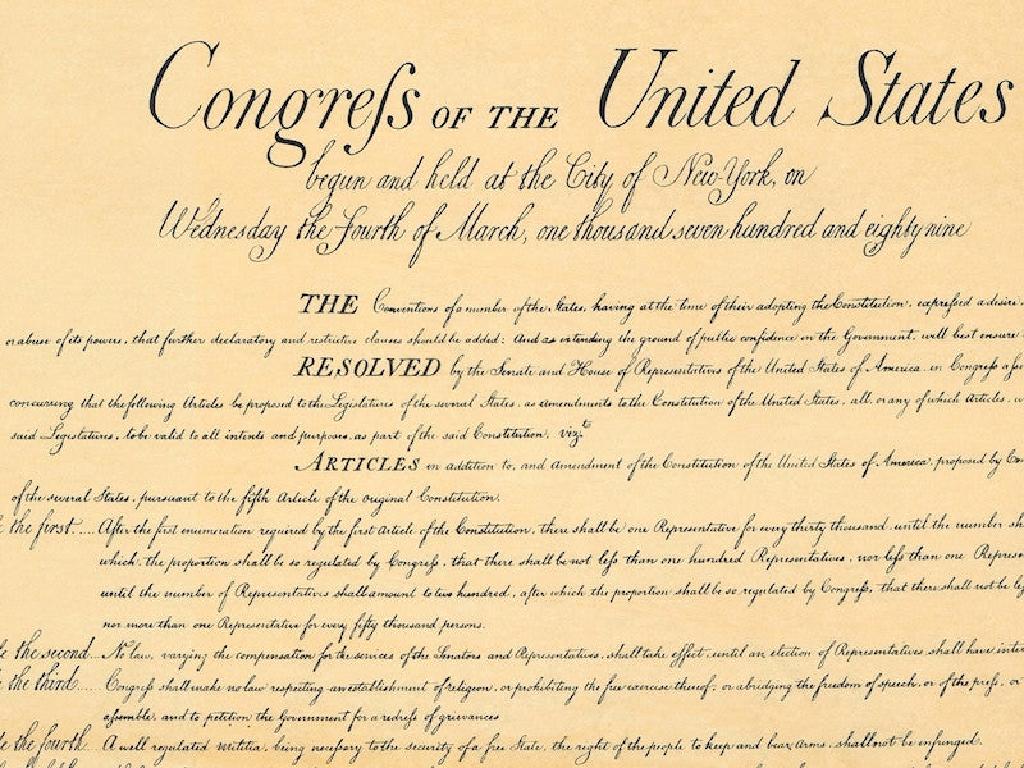 Congreſs OF THE United States
begun and held at the City of New-York, on
Wednesday the fourth of March, one thousand seven hundred and eighty nine
THE Conventions of a number of the States, having at the time of their adopting the Constitution, expreſsed a desire,
or abuse of its powers, that further declaratory and restrictive clauses should be added: And as extending the ground of public confidence in the Government, will best ensure
RESOLVED by the Senate and House of Representatives of the United States of America, in Congreſs
concurring that the following Articles be proposed to the Legislatures of the several States, as amendments to the Constitution of the United States, all, or any of which Articles,
said Legislatures, to be valid to all intents and purposes, as part of the said Constitution. vizt
ARTICLES in addition to, and Amendment of the Constitution of the United States of America, proposed by
of the several States, pursuant to the fifth Article of the original Constitution.
the first.... After the first enumeration required by the first Article of the Constitution, there shall be one Representative for every thirty thousand, until the number
which, the proportion shall be so regulated by Congreſs, that there shall be not leſs than one hundred Representatives, nor leſs than one
until the number of Representatives shall amount to two hundred, after which the proportion shall be so regulated by Congreſs, that there shall not be
nor more than one Representative for every fifty thousand persons.
the second... No law, varying the compensation for the services of the Senators and Representatives, shall take effect, until an election of Representatives shall have
the third..... Congreſs shall make no law respecting an establishment of religion, or prohibiting the free exercise thereof; or abridging the freedom of speech, or of the preſs, or
aſsemble, and to petition the Government for a redreſs of grievances
the fourth.. A well regulated Militia, being neceſsary to the security of a free State, the right of the people to keep and bear Arms, shall not be infringed.